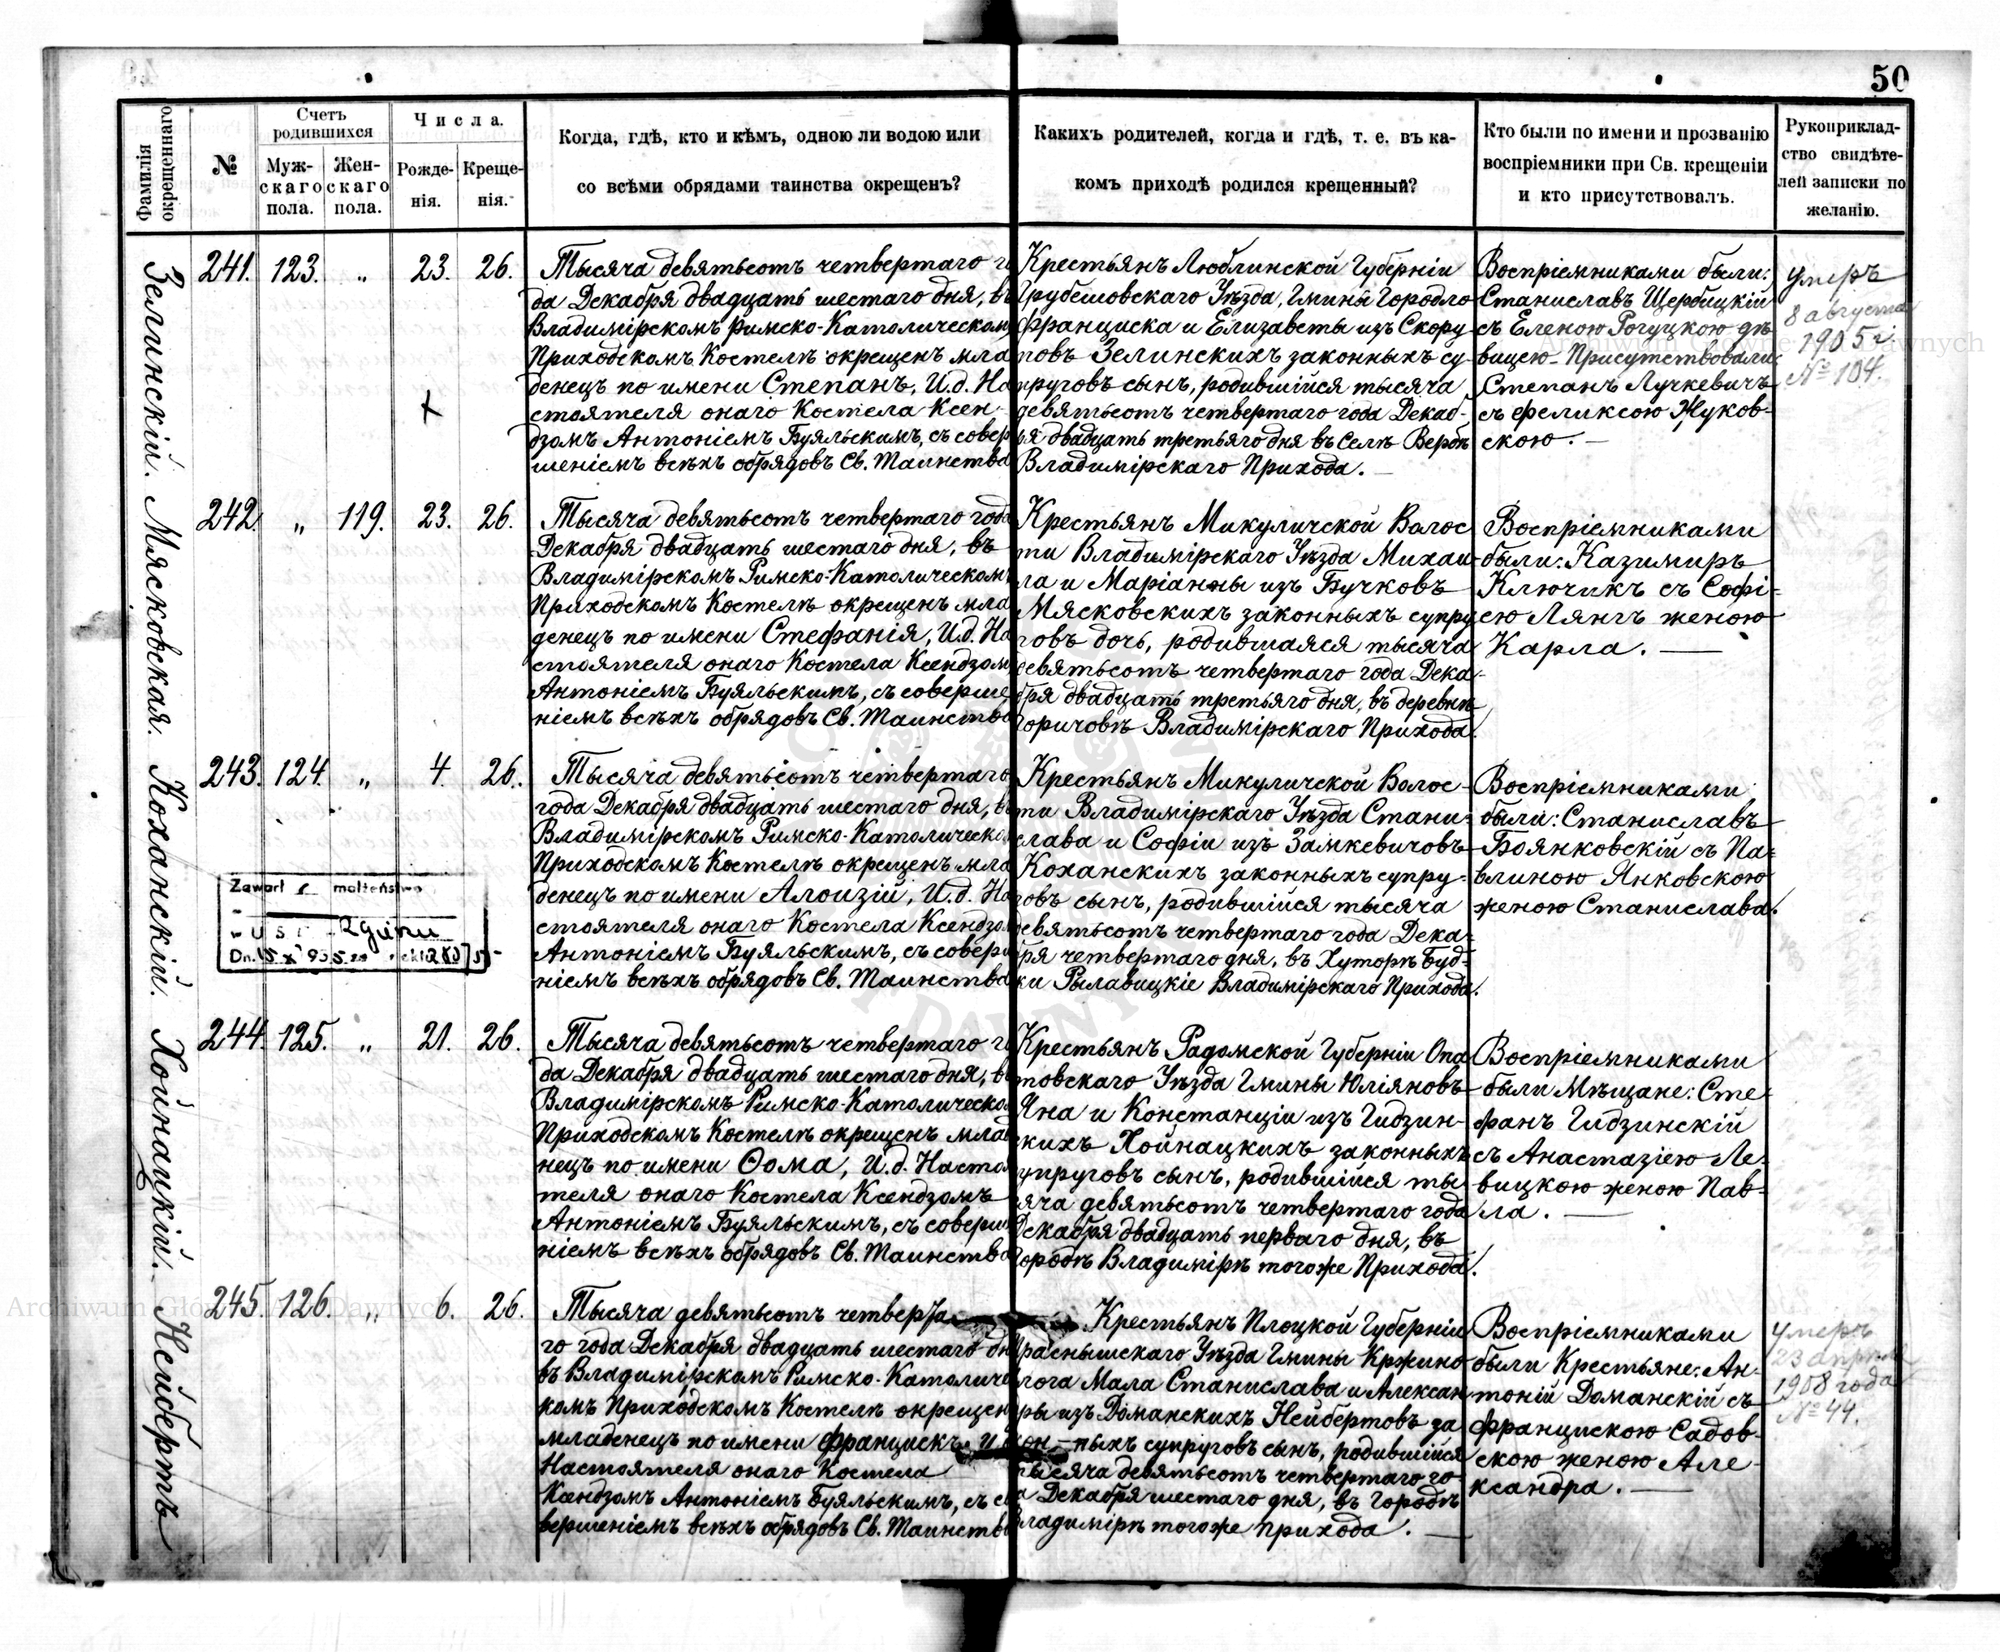 50
Фамилія
окрещеннаго
№
Счетъ
родившихся
Муж-
скаго
пола.
Жен-
скаго
пола.
Числа.
Рожде-
нія.
Креще-
нія.
Когда, гдѣ, кто и кѣмъ, одною ли водою или
со всѣми обрядами таинства окрещенъ?
Какихъ родителей, когда и гдѣ, т. е. въ ка-
комъ приходѣ родился крещенный?
Кто были по имени и прозванію
воспріемники при Св. крещеніи
и кто присутствовалъ.
Рукоприклад-
ство свидѣте-
лей записки по
желанію.
Зелинскій.
241. 123. „ 23. 26.
Тысяча девятьсотъ четвертаго го
да Декабря двадцать шестаго дня, въ
Владимірскомъ Римско-Католическомъ
Приходскомъ Костелѣ окрещенъ мла
денецъ по имени Степанъ, И.д. На
стоятеля онаго Костела Ксен-
дзомъ Антоніемъ Буяльскимъ, съ совер
шеніемъ всѣхъ обрядовъ Св. Таинства
Крестьянъ Люблинской Губерніи
Грубешовскаго Уѣзда, Гмины Городло
Франциска и Елизаветы изъ Скору
повъ Зелинскихъ законныхъ су
пруговъ сынъ, родившійся тысяча
девятьсотъ четвертаго года Декаб-
ря двадцать третьяго дня въ Селѣ Вербѣ
Владимірскаго Прихода.
Воспріемниками были:
Станиславъ Щербицкій
съ Еленою Рогуцкою дѣ
вицею- Присутствовали:
Степанъ Лучкевичъ
съ Феликсою Жуков-
скою.
умеръ
8 августа
1905 г.
№ 104.
Мясковская.
242. „ 119. 23. 26.
Тысяча девятьсотъ четвертаго года
Декабря двадцать шестаго дня, въ
Владимірскомъ Римско-Католическомъ
Приходскомъ Костелѣ окрещенъ мла
денецъ по имени Стефанія, И.д. На
стоятеля онаго Костела Ксендзомъ
Антоніемъ Буяльскимъ, съ соверше
ніемъ всѣхъ обрядовъ Св. Таинства
Крестьянъ Микуличской Волос
ти Владимірскаго Уѣзда Михаи
ла и Маріанны изъ Бучковъ
Мясковскихъ законныхъ супру
говъ дочь, родившаяся тысяча
девятьсотъ четвертаго года Дека-
бря двадцать третьяго дня, въ деревнѣ
Горичовѣ Владимірскаго Прихода.
Воспріемниками
были: Казимиръ
Ключикъ съ Софі-
ею Лянгъ женою
Карла.
Коханскій.
243. 124. „ 4. 26.
Тысяча девятьсотъ четвертаго
года Декабря двадцать шестаго дня, въ
Владимірскомъ Римско-Католическо
Приходскомъ Костелѣ окрещенъ мла
денецъ по имени Алоизій, И.д. На
стоятеля онаго Костела Ксендзо
Антоніемъ Буяльскимъ, съ соверш
ніемъ всѣхъ обрядовъ Св. Таинства
Крестьянъ Микуличской Волос-
ти Владимірскаго Уѣзда Стани-
слава и Софіи изъ Замкевичовъ
Коханскихъ законныхъ супру-
говъ сынъ, родившійся тысяча
девятьсотъ четвертаго года Дека-
бря четвертаго дня, въ Хуторѣ Буд-
ки Рылавицкіе Владимірскаго Прихода.
Воспріемниками
были: Станиславъ
Боянковскій съ Па-
влиною Янковскою
женою Станислава.
Zawarł małżeństwo
w U S C
Dn.
Хойнацкій.
244. 125. „ 21. 26.
Тысяча девятьсотъ четвертаго го
да Декабря двадцать шестаго дня, въ
Владимірскомъ Римско-Католическо
Приходскомъ Костелѣ окрещенъ млад
нецъ по имени Ѳома, И.д. Настоя
теля онаго Костела Ксендзомъ
Антоніемъ Буяльскимъ, съ соверш
ніемъ всѣхъ обрядовъ Св. Таинства
Крестьянъ Радомской Губерніи Опа
товскаго Уѣзда Гмины Юліяновъ
Яна и Констанціи изъ Гидзин-
скихъ Хойнацкихъ законныхъ
супруговъ сынъ, родившійся ты
сяча девятьсотъ четвертаго года
Декабря двадцать перваго дня, въ
Городѣ Владимірѣ тогоже Прихода.
Воспріемниками
были Мѣщане: Сте-
фанъ Гидзинскій
съ Анастазіею Ле-
вицкою женою Пав-
ла.
Нейбертъ
245. 126. „ 6. 26.
Тысяча девятьсотъ четверта
го года Декабря двадцать шестаго дн
въ Владимірскомъ Римско-Католичес
комъ Приходскомъ Костелѣ окрещен
младенецъ по имени Францискъ, И.д.
Настоятеля онаго Костела
Ксендзомъ Антоніемъ Буяльскимъ, съ со
вершеніемъ всѣхъ обрядовъ Св. Таинства
Крестьянъ Плоцкой Губерніи
Праснышскаго Уѣзда Гмины Кржино
лога Мала Станислава и Алексан
дры изъ Доманскихъ Нейбертовъ за
кон-ныхъ супруговъ сынъ, родившійся
тысяча девятьсотъ четвертаго го-
да Декабря шестаго дня, въ Городѣ
Владимірѣ тогоже прихода.
Воспріемниками
были Крестьяне: Ан-
тоній Доманскій съ
Францискою Садов-
скою женою Але-
ксандра.
умеръ
23 апрѣля
1908 года
№ 44.